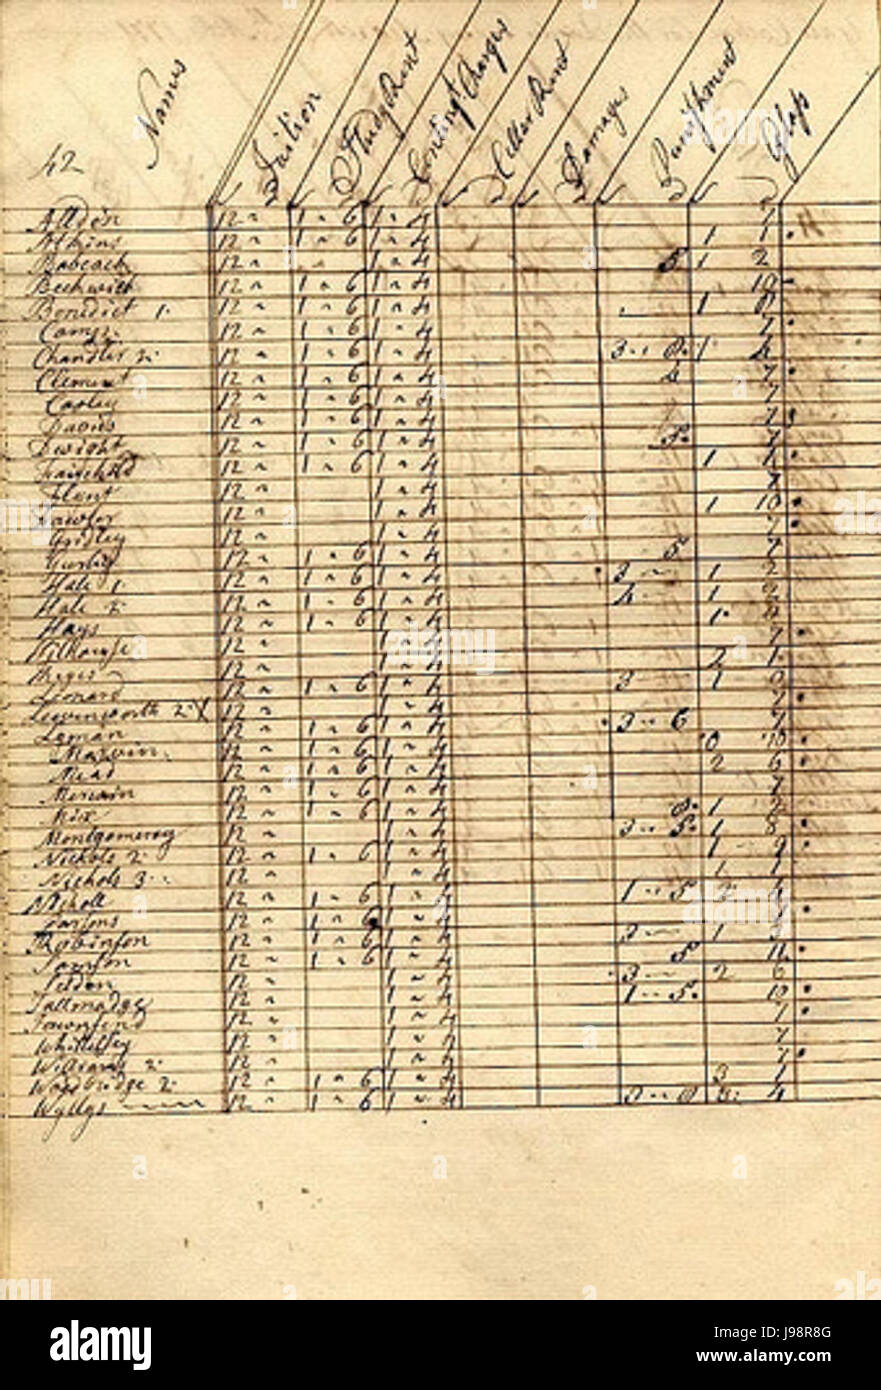 Names Tuition Study Rent Conting.t Charges Cellar Rent Damages Punishment Glass
42
Allden 12 ~ 1 ~ 6 1 ~ 4 7
Atkins 12 ~ 1 ~ 6 1 ~ 4 1 1
Babcock 12 ~ 1 ~ 4 5 1 2
Beckwith 12 ~ 1 ~ 6 1 ~ 4 10
Benedict 1. 12 ~ 1 ~ 6 1 ~ 4 1 8
Camp 12 ~ 1 ~ 6 1 ~ 4 7
Chandler 2. 12 ~ 1 ~ 6 1 ~ 4 1 4
Clement 12 ~ 1 ~ 6 1 ~ 4 4 7
Cooley 12 ~ 1 ~ 6 1 ~ 4 7
Davies 12 ~ 1 ~ 6 1 ~ 4 7
Dwight 12 ~ 1 ~ 6 1 ~ 4 7
Fairchild 12 ~ 1 ~ 6 1 ~ 4 1
Flint 12 ~ 1 ~ 4 7
12 ~ 1 ~ 4 1 10
Gridley 12 ~ 1 ~ 4 7
Gurley 12 ~ 1 ~ 6 1 ~ 4 5 7
Hale 1. 12 ~ 1 ~ 6 1 ~ 4 3 ~ 1 2
Hale 2. 12 ~ 1 ~ 6 1 ~ 4 4 1 2
Hays 12 ~ 1 ~ 6 1 ~ 4 1
Hilhouse 12 ~ 1 ~ 4 7
12 ~ 1 ~ 4 2 1
Leonard 12 ~ 1 ~ 6 1 ~ 4 3 1
Leavensworth 2. X 12 ~ 1 ~ 4 7
Lyman 12 ~ 1 ~ 6 1 ~ 4 3 ~ 6
Marvin 12 ~ 1 ~ 6 1 ~ 4 0 10
Mead 12 ~ 1 ~ 6 1 ~ 4 2 6
12 ~ 1 ~ 6 1 ~ 4 7
Mix 12 ~ 1 ~ 6 1 ~ 4 1 2
Montgomerey 12 ~ 1 ~ 4 3 ~ 5 1 8
Nichols 2. 12 ~ 1 ~ 6 1 ~ 4 1 9
Nichols 3. 12 ~ 1 ~ 4 1 1
Nicholl 12 ~ 1 ~ 6 1 ~ 4 1 ~ 5
Parsons 12 ~ 1 ~ 6 1 ~ 4
Robinson 12 ~ 1 ~ 6 1 ~ 4 3 ~ 1
Samson 12 ~ 1 ~ 6 1 ~ 4 5 11
Selden 12 ~ 1 ~ 4 3 ~ 2 6
Tallmadge 12 ~ 1 ~ 4 1 ~ 5 10
Townsend 12 ~ 1 ~ 4 7
Whittlesey 12 ~ 1 ~ 4 7
Williams 2. 12 ~ 1 ~ 4 7
Woodbridge 2. 12 ~ 1 ~ 6 1 ~ 4 3 1
Wyllys 12 ~ 1 ~ 6 1 ~ 4 4
alamy
Image ID: J98R8G
www.alamy.com